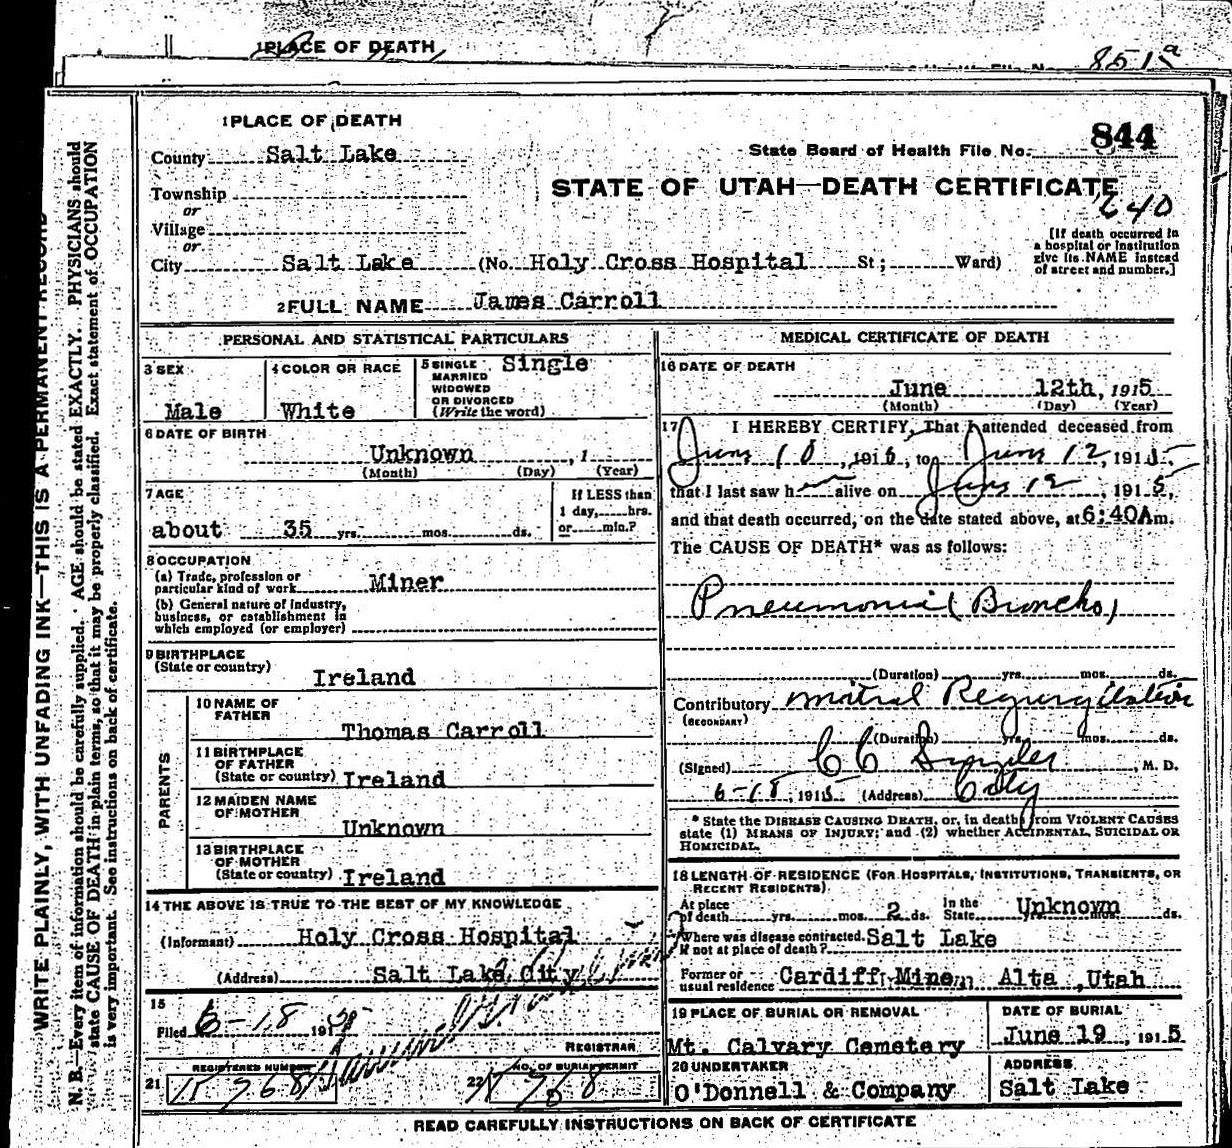 1 PLACE OF DEATH
851a
1 PLACE OF DEATH
844
County Salt Lake
State Board of Health File No.
Township
or
STATE OF UTAH—DEATH CERTIFICATE
640
Village
or
City Salt Lake (No. Holy Cross Hospital St; Ward)
[If death occurred in
a hospital or institution
give its NAME instead
of street and number.]
2 FULL NAME James Carroll
PERSONAL AND STATISTICAL PARTICULARS
3 SEX
Male
4 COLOR OR RACE
White
5 SINGLE Single
MARRIED
WIDOWED
OR DIVORCED
(Write the word)
6 DATE OF BIRTH
Unknown , 1
(Month) (Day) (Year)
7 AGE
about 35 yrs. mos. ds.
If LESS than
1 day, hrs.
or min.?
8 OCCUPATION
(a) Trade, profession or
particular kind of work Miner
(b) General nature of industry,
business, or establishment in
which employed (or employer)
9 BIRTHPLACE
(State or country)
Ireland
PARENTS
10 NAME OF
FATHER
Thomas Carroll
11 BIRTHPLACE
OF FATHER
(State or country) Ireland
12 MAIDEN NAME
OF MOTHER
Unknown
13 BIRTHPLACE
OF MOTHER
(State or country) Ireland
14 THE ABOVE IS TRUE TO THE BEST OF MY KNOWLEDGE
(Informant) Holy Cross Hospital
(Address) Salt Lake City
15
Filed 6-18 191
REGISTRAR
REGISTERED NUMBER
21
NO. OF BURIAL PERMIT
22
MEDICAL CERTIFICATE OF DEATH
16 DATE OF DEATH
June 12th, 1915
(Month) (Day) (Year)
17 I HEREBY CERTIFY, That I attended deceased from
June 10, 1915, to June 12, 1915,
that I last saw h alive on June 12, 1915,
and that death occurred, on the date stated above, at 6:40A m.
The CAUSE OF DEATH* was as follows:
Pneumonia (Broncho)
(Duration) yrs. mos. ds.
Contributory Mitral Regurgitation
(SECONDARY)
(Duration) yrs. mos. ds.
(Signed) C C Snyder, M. D.
6-18, 1915 (Address) City
* State the DISEASE CAUSING DEATH, or, in deaths from VIOLENT CAUSES
state (1) MEANS OF INJURY; and (2) whether ACCIDENTAL, SUICIDAL OR
HOMICIDAL.
18 LENGTH OF RESIDENCE (FOR HOSPITALS, INSTITUTIONS, TRANSIENTS, OR
RECENT RESIDENTS).
At place
of death yrs. mos. 2 ds. In the
State Unknown yrs. mos. ds.
Where was disease contracted. Salt Lake
If not at place of death?
Former or
usual residence Cardiff Mine, Alta, Utah
19 PLACE OF BURIAL OR REMOVAL
Mt. Calvary Cemetery
DATE OF BURIAL
June 19, 1915
20 UNDERTAKER
O'Donnell & Company
ADDRESS
Salt Lake
READ CAREFULLY INSTRUCTIONS ON BACK OF CERTIFICATE
WRITE PLAINLY, WITH UNFADING INK—THIS IS A PERMANENT RECORD
N. B.—Every item of information should be carefully supplied. AGE should be stated EXACTLY. PHYSICIANS should
state CAUSE OF DEATH in plain terms, so that it may be properly classified. Exact statement of OCCUPATION
is very important. See instructions on back of certificate.